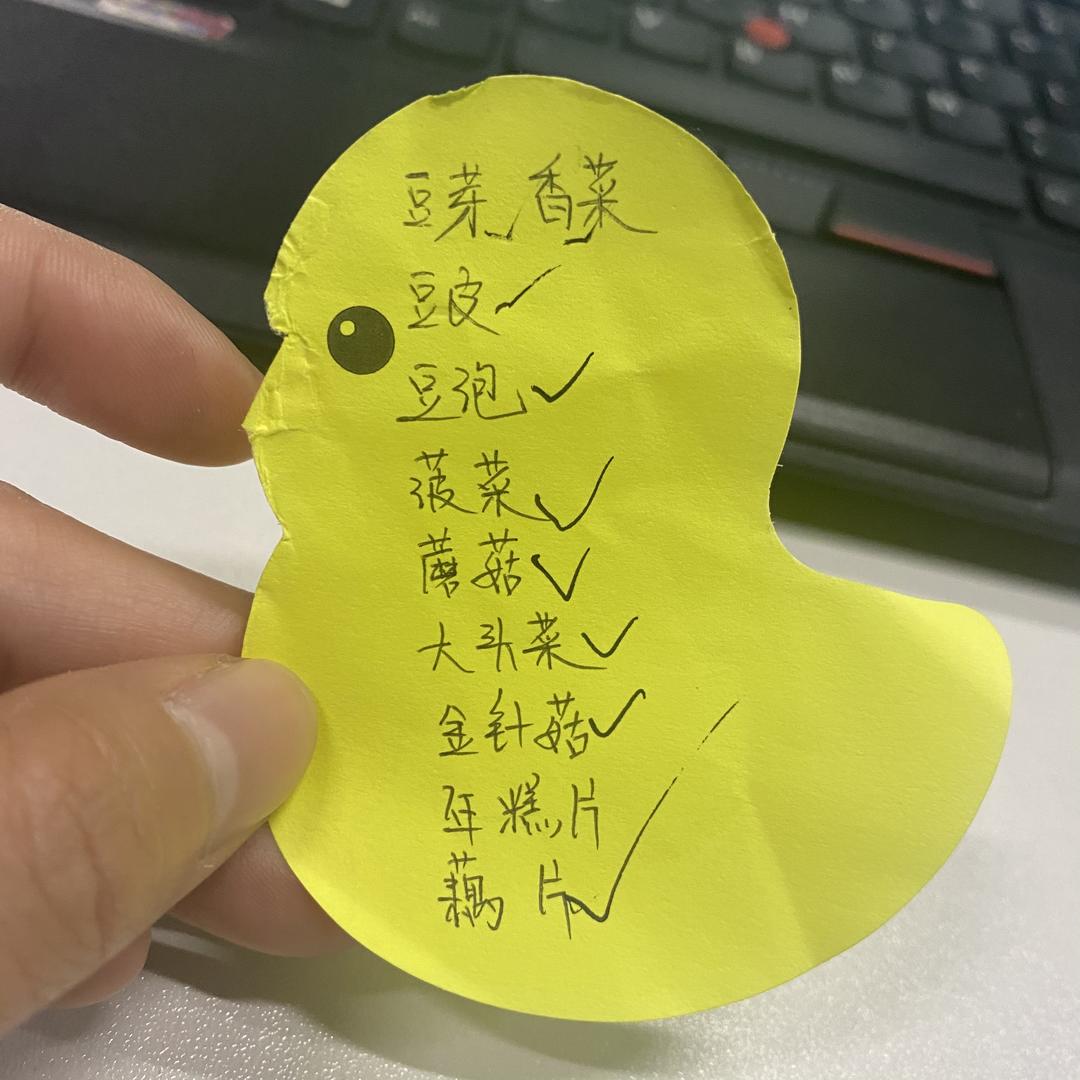 豆芽 香菜
豆皮
豆泡
菠菜
蘑菇
大头菜
金针菇
年糕片
藕片